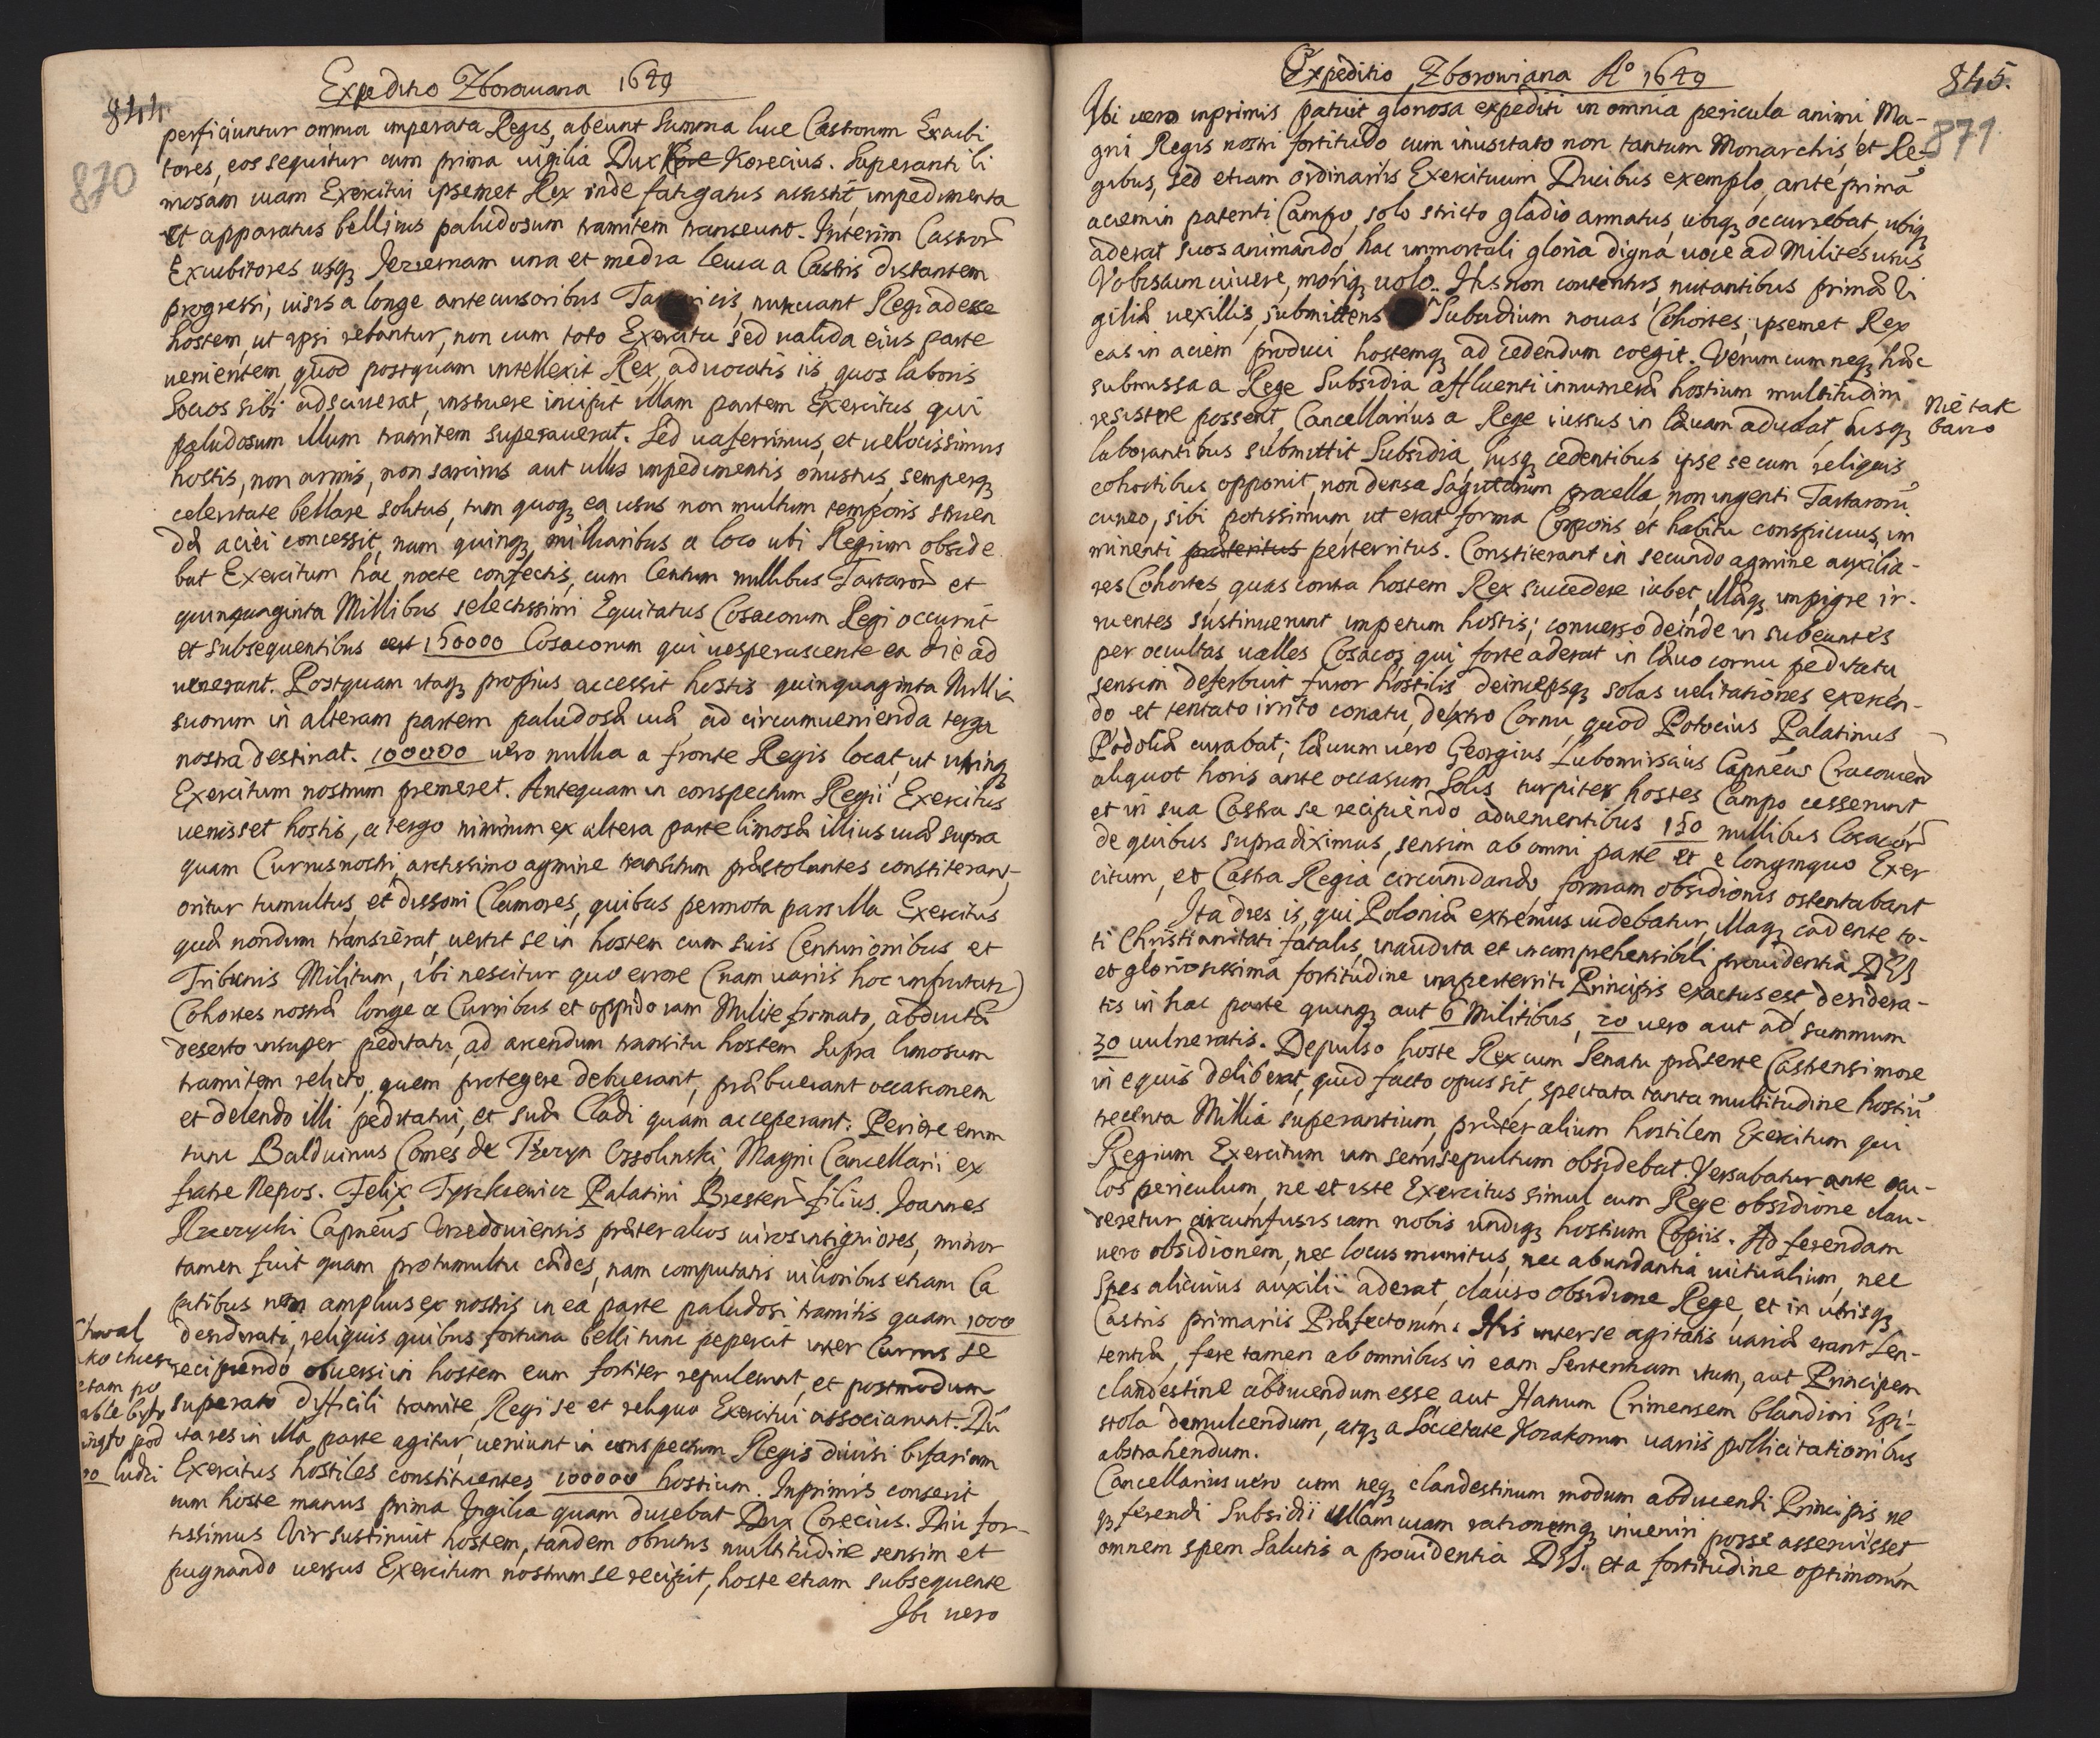 Expeditio Zborowiana 1649
844
870
perficiuntur omnia imperata Regis, abeunt summa luce Castrorum Excubi
tores, eos sequitur cum prima uigilia Dux Korecius. Superanti li
mosam uiam Exercitui ipsemet Rex inde fatigatus assistit, impedimenta
et apparatus bellicus paludosum tramitem transeunt. Interim Castrorũ
Excubitores usqꝫ Jeziernam una et media leuca a Castris distantem
progressi, uisis a longe antecursoribus nunciant Regi adesse
hostem, ut ipsi rebantur, non cum toto Exercitu sed ualida eius parte
uenientem, quod postquam intellexit Rex, aduocatis iis, quos laboris
socios sibi adsciuerat, instruere incipit illam partem Exercitus, qui
paludosum illum tramitem superauerat. Sed uaferrimus, et uelocissimus
hostis, non armis, non sarcinis aut ullis impedimentis onustus, semperqꝫ
celeritate bellare solitus, tum quoqꝫ ea usus non multum temporis struen
dæ aciei concessit, nam quinqꝫ milliaribus a loco ubi Regium obside
bat Exercitum hac nocte confectis, cum Centum millibus Tartarorũ et
quinquaginta Millibus selectissimi Equitatus Cosacorum Regi occurrit
et subsequentibus 150000 Cosacorum qui uesperascente ea die ad
uenerant. Postquam itaqꝫ propius accessit hostis quinquaginta Millia
suorum in alteram partem paludosæ uiæ, ad circumuenienda terga
nostra destinat. 100000 uero millia a fronte Regis locat, ut utrinqꝫ
Exercitum nostrum premeret. Antequam in conspectum Regii Exercitus
uenisset hostis, a tergo nimirum ex altera parte limosæ illius uiæ supra
quam Currus nostri arctissimo agmine transitum præstolantes constiterant,
oritur tumultus, et dissoni Clamores, quibus permota pars illa Exercitus
quæ nondum transierat, uertit se in hostem cum suis Centurionibus et
Tribunis Militum, ibi nescitur quo errore (nam uariis hoc imputatur)
Cohortes nostræ longe a Curribus et oppido iam Milite firmato, abductæ
deserto insuper peditatu, ad arcendum transitu hostem supra limosum
tramitem relicto, quem protegere debuerant, præbuerant occasionem
et delendo illi peditatui, et suæ Cladi quam acceperant. Periere enim
tunc Balduinus Comes de Tęczyn Ossolinski, Magni Cancellarii ex
fratre Nepos. Felix Tyszkiewicz Palatini Bresten filius. Joannes
Rzeczycki Capneus Vrzedouiensis præter alios uiros insigniores, minor
tamen fuit quam pro tumultu cædes, nam computatis uilioribus etiam Ca
non amplius ex nostris in ea parte paludosi tramitis quam 1000
desiderati, reliquis quibus fortuna belli tunc pepercit inter Currus se
recipiendo obuersi in hostem eum fortiter repulerunt, et postmodum
superato difficili tramite, Regi se et reliquo Exercitui associarunt. Dũ
ita res in illa parte agitur, ueniunt in conspectum Regis diuisi bifariam
Exercitus hostiles constituentes 100000 hostium. Inprimis conserit
cum hoste manus prima Vigilia quam ducebat Dux Corecius. Diu for-
tissimus Vir sustinuit hostem, tandem obrutus multitudine sensim et
pugnando uersus Exercitum nostrum se recipit, hoste etiam subsequente
Ibi uero
ludzi
Expeditio Zborowiana Aº 1649
845.
871
Ibi uero inprimis patuit gloriosa expediti in omnia pericula animi, Ma-
gni Regis nostri fortitudo cum inusitato non tantum Monarchis, et Re-
gibus, sed etiam ordinariis Exercituum Ducibus exemplo, ante primã
aciem in patenti Campo, solo stricto gladio armatus, ubiqꝫ occurrebat, ubiqꝫ
aderat suos animando, hac immortali gloria digna uoce ad Milites usus
Vobiscum uiuere, moriqꝫ uolo. His non contentus, nutantibus primæ Vi
giliæ uexillis, submittens Subsidium nouas Cohortes, ipsemet Rex
eas in aciem produci hostemqꝫ ad cedendum coegit. Verum cum neqꝫ hæc
submissa a Rege Subsidia affluenti innumeræ hostium multitudini
resistere possent, Cancellarius a Rege iussus in læuam aduolat, hisqꝫ
Nie tak
barzo
laborantibus submittit Subsidia, iisqꝫ cedentibus ipse se cum reliquis
cohortibus opponit, non densa sagittarum procella, non ingenti Tartarorũ
cuneo, sibi potissimum, ut erat forma Corporis et habitu conspicuus, im
minenti perterritus. Constiterant in secundo agmine auxilia-
res Cohortes, quas contra hostem Rex succedere iubet, illæqꝫ impigre ir-
ruentes sustinuerunt impetum hostis; conuerso deinde in subeuntes
per occultas ualles Cosacos, qui forte aderat in læuo cornu peditatu
sensim deferbuit furor hostilis deincepsqꝫ solas uelitationes exercen-
do et tentato irrito conatu, dextro Cornu, quod Potocius Palatinus
Podoliæ curabat; læuum uero Georgius Lubomirscius Capneus Cracouien
aliquot horis ante occasum Solis turpiter hostes Campo cesserunt
et in sua Castra se recipiendo aduenientibus 150 millibus Cosacorũ
de quibus supradiximus, sensim ab omni parte et e longinquo Exer
citum, et Castra Regia circumdando, formam obsidionis ostentabant
Ita dies is, qui Poloniæ extremus uidebatur, illaqꝫ cadente to-
ti Christianitati fatalis, inaudita et incomprehensibili prouidentia DEI
et gloriosissima fortitudine imperterriti Principis exactus est desidera-
tis in hac parte quinqꝫ aut 6 Militibus, 20 uero aut ad summum
30 uulneratis. Depulso hoste Rex cum Senatu præsente Castrensi more
in equis deliberat, quid facto opus sit, spectata tanta multitudine hostiũ
trecenta Millia superantium, præter alium hostilem Exercitum qui
Regium Exercitum iam semisepultum obsidebat. Versabatur ante ocu-
los periculum, ne et iste Exercitus simul cum Rege obsidione clau-
deretur, circumfusis iam nobis undiqꝫ hostium Copiis. Ad ferendam
uero obsidionem, nec locus munitus, nec abundantia uictualium, nec
Spes alicuius auxilii aderat, clauso obsidione Rege, et in utrisqꝫ
Castris primariis Præfectorum. His inter se agitatis uariæ erant sen-
tentiæ, fere tamen ab omnibus in eam sententiam itum, aut Principem
clandestine abducendum esse aut Hanum Crimensem blandiori Epi-
stola demulcendum, atqꝫ a Societate Kozakorum uariis pollicitationibus
abstrahendum.
Cancellarius uero cum neqꝫ clandestinum modum abducendi Principis ne
qꝫ ferendi Subsidii ullam uiam rationemqꝫ inueniri posse asseruisset,
omnem spem Salutis a prouidentia DEI. et a fortitudine optimorum